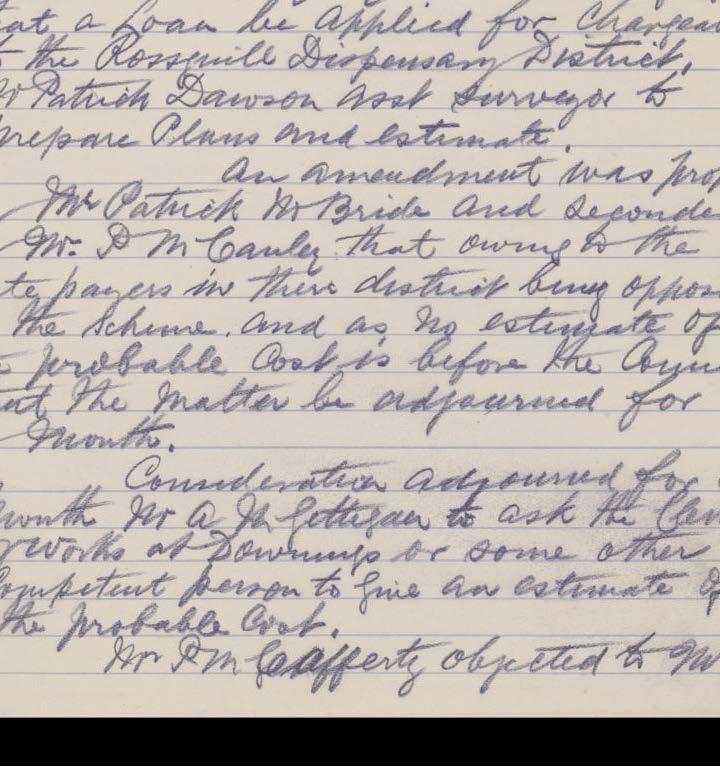 at a Loan be applied for Chargea
the Rossguill Dispensary District,
Patrick Dawson asst surveyor to
repare Plans and estimate.
An amendment was prop
Mr Patrick McBride and seconde
Mr. P McCauley that owing to the
te payers in there district being oppos
the Scheme. and as no estimate of
probable cost is before the Coun
at the Matter be adjourned for
Month.
Consideration adjourned for
month Mr A McGettigan to ask the Cler
works at Downings or some other
Competent person to give an estimate of
the probable Cost.
Mr P McCafferty objected to Mr